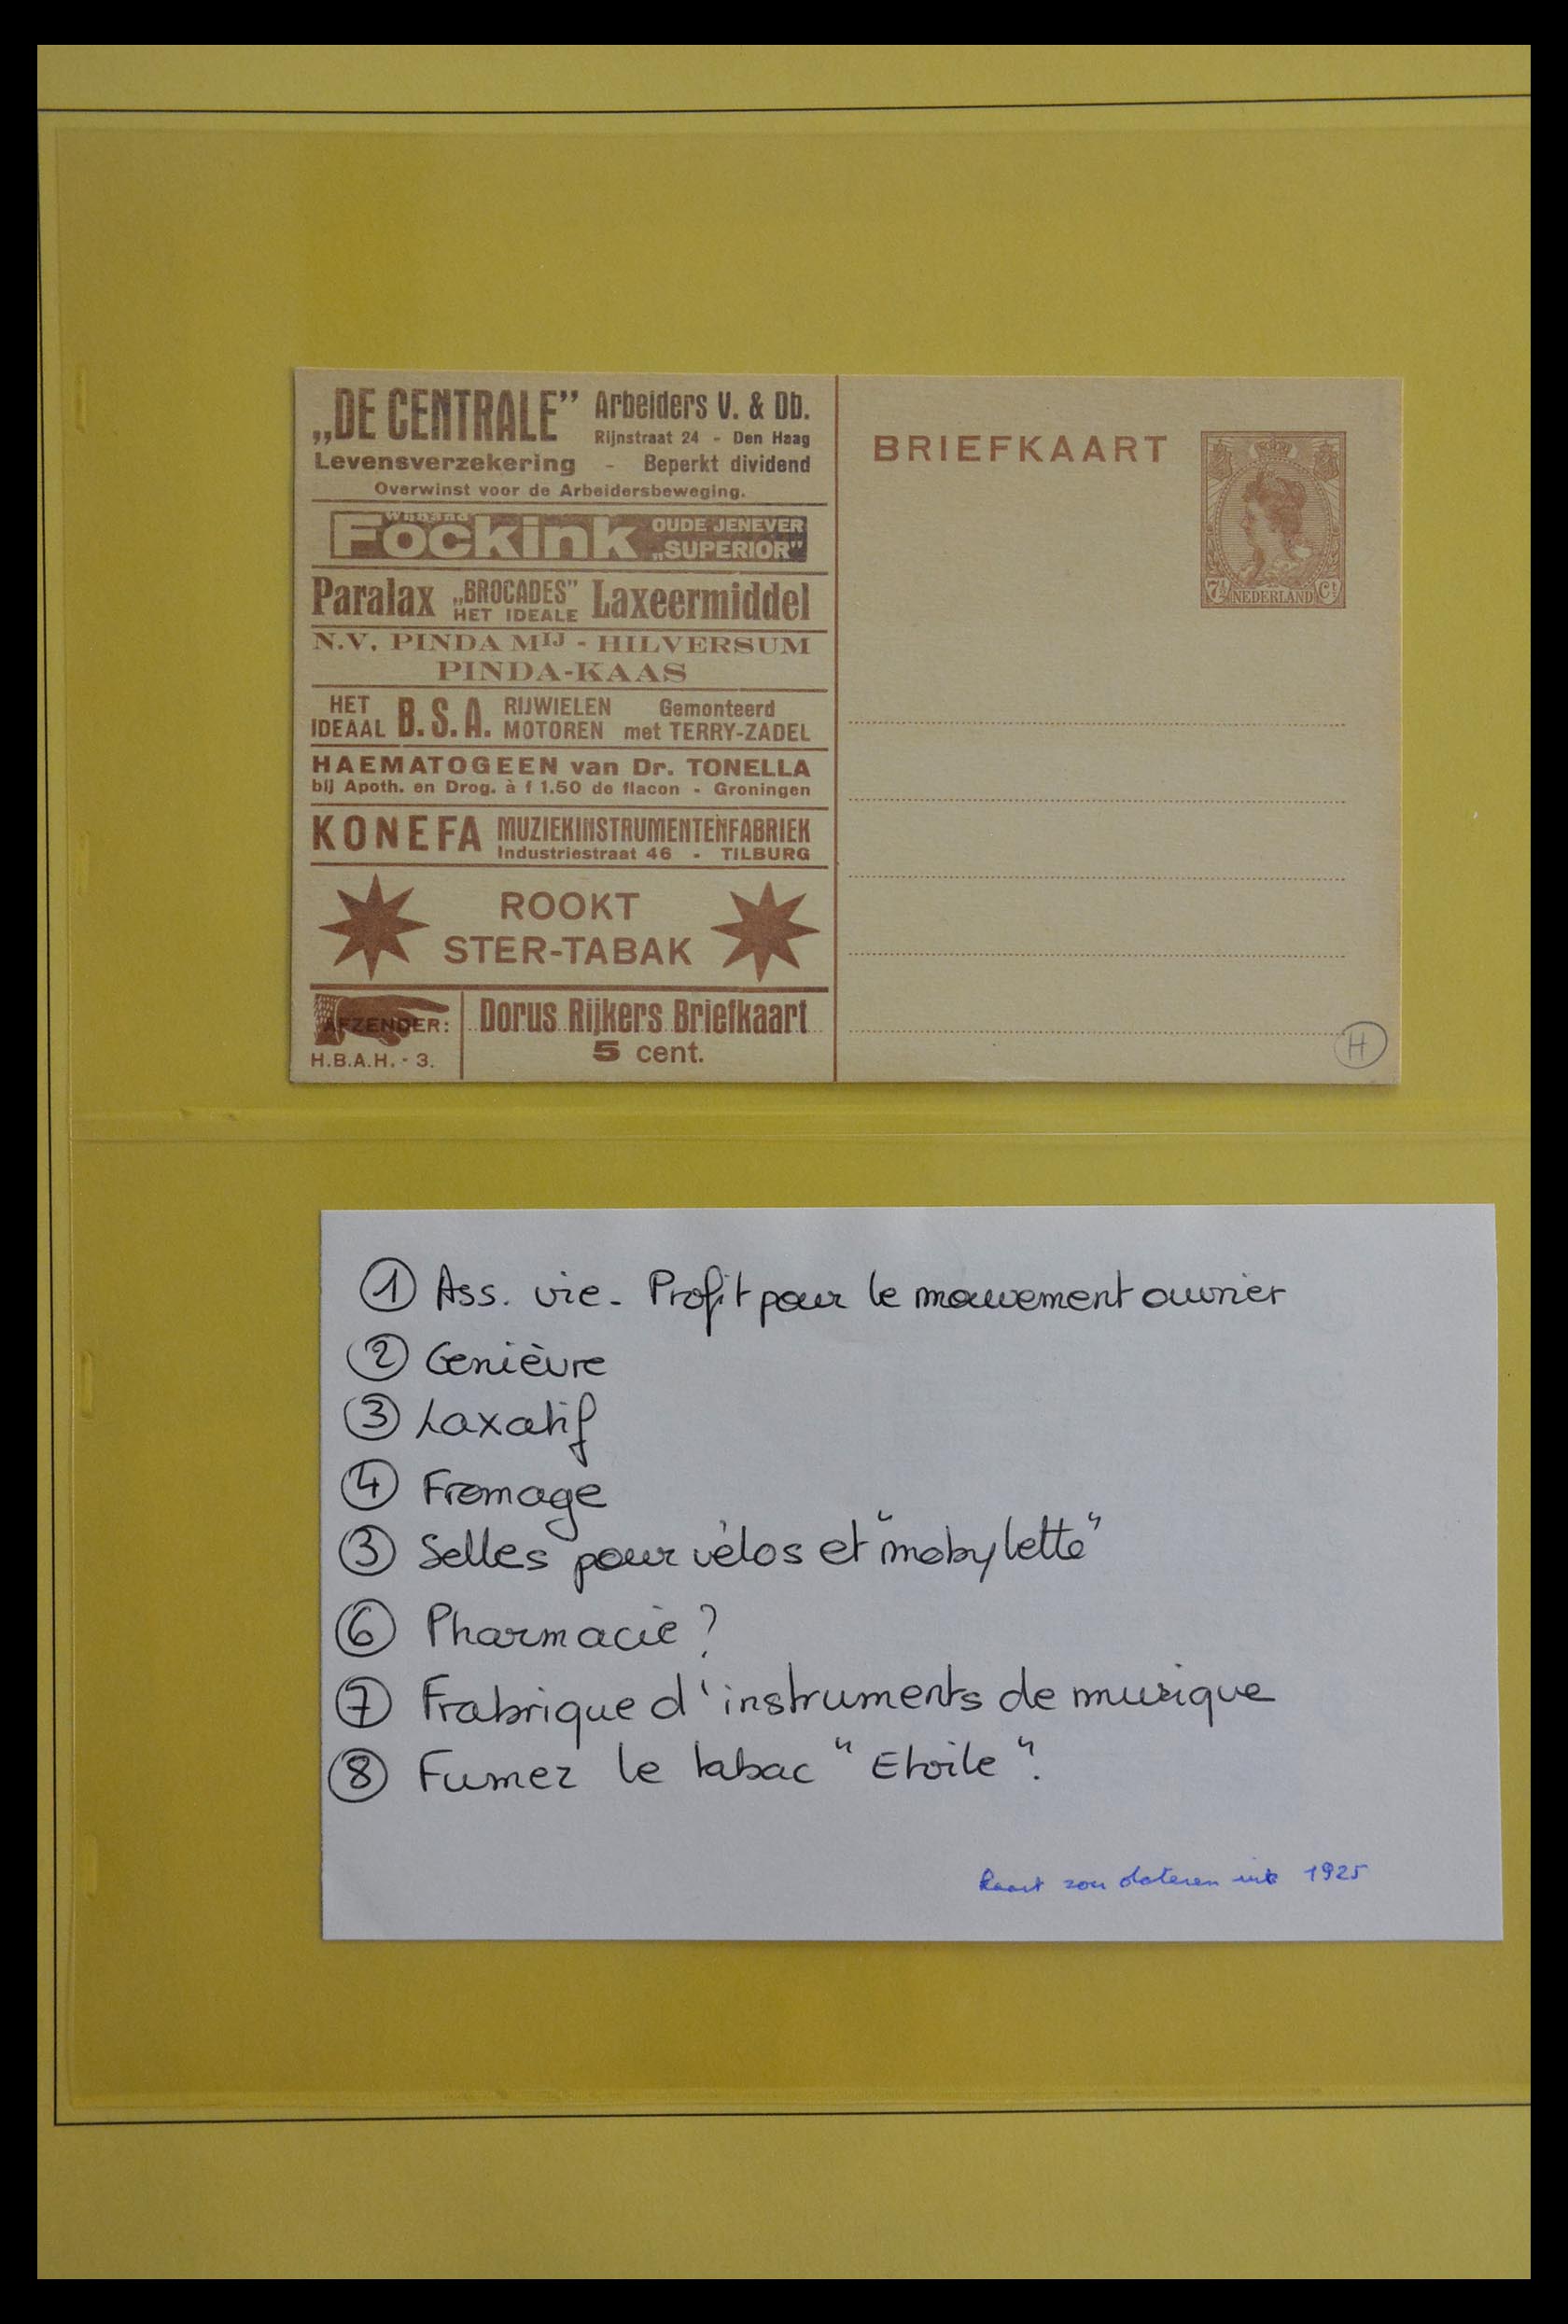 „DE CENTRALE” Arbeiders V. & Db.
Rijnstraat 24 - Den Haag
Levensverzekering - Beperkt dividend
Overwinst voor de Arbeidersbeweging.
Wijnand
Fockink OUDE JENEVER
„SUPERIOR”
Paralax „BROCADES” Laxeermiddel
HET IDEALE
N.V. PINDA MIJ - HILVERSUM
PINDA-KAAS
HET IDEAAL B.S.A. RIJWIELEN Gemonteerd
MOTOREN met TERRY-ZADEL
HAEMATOGEEN van Dr. TONELLA
bij Apoth. en Drog. à f 1.50 de flacon - Groningen
KONEFA MUZIEKINSTRUMENTENFABRIEK
Industriestraat 46 - TILBURG
ROOKT
STER-TABAK
AFZENDER: Dorus Rijkers Briefkaart
H.B.A.H. - 3. 5 cent.
BRIEFKAART
7½ NEDERLAND Ct
H
① Ass. vie. Profit pour le mouvement ouvrier
② Genièvre
③ Laxatif
④ Fromage
③ Selles pour vélos et "mobylette"
⑥ Pharmacie ?
⑦ Frabrique d'instruments de musique
⑧ Fumez le tabac "Etoile".
kaart zou dateren uit 1925